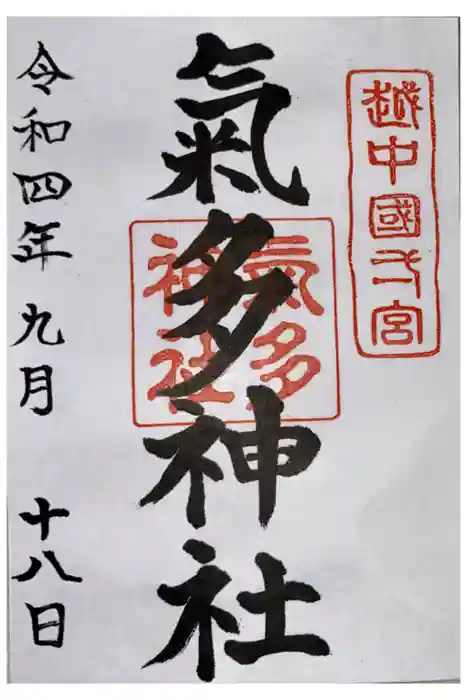 越中國弌宮
氣多神社
氣多
神社
令和四年九月十八日